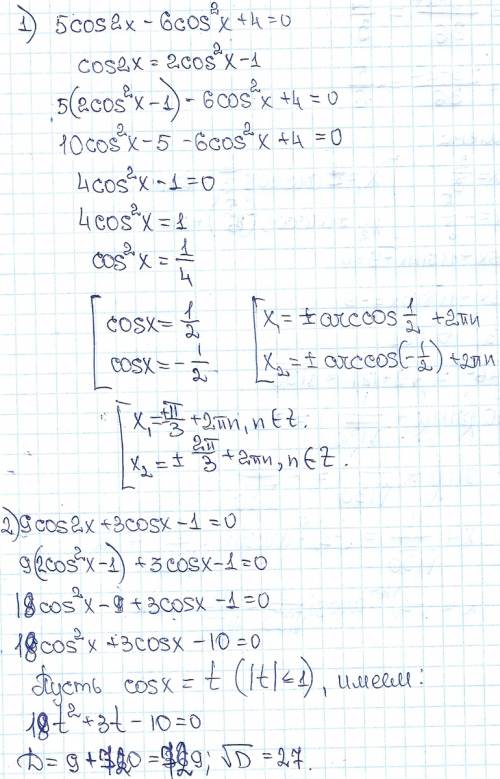 1) 5cos2x - 6cos²x + 4 = 0
cos2x = 2cos²x - 1
5(2cos²x - 1) - 6cos²x + 4 = 0
10cos²x - 5 - 6cos²x + 4 = 0
4cos²x - 1 = 0
4cos²x = 1
cos²x = 1/4
[ cosx = 1/2 [ x₁ = ± arccos 1/2 + 2πn
cosx = -1/2 x₂ = ± arccos(-1/2) + 2πn
[ x₁ = ±π/3 + 2πn, n∈Z.
x₂ = ± 2π/3 + 2πn, n∈Z.
2) 9cos2x + 3cosx - 1 = 0
9(2cos²x - 1) + 3cosx - 1 = 0
18cos²x - 9 + 3cosx - 1 = 0
18cos²x + 3cosx - 10 = 0
Пусть cosx = t (|t|≤1), имеем:
18t² + 3t - 10 = 0
D = 9 + 720 = 729; √D = 27.